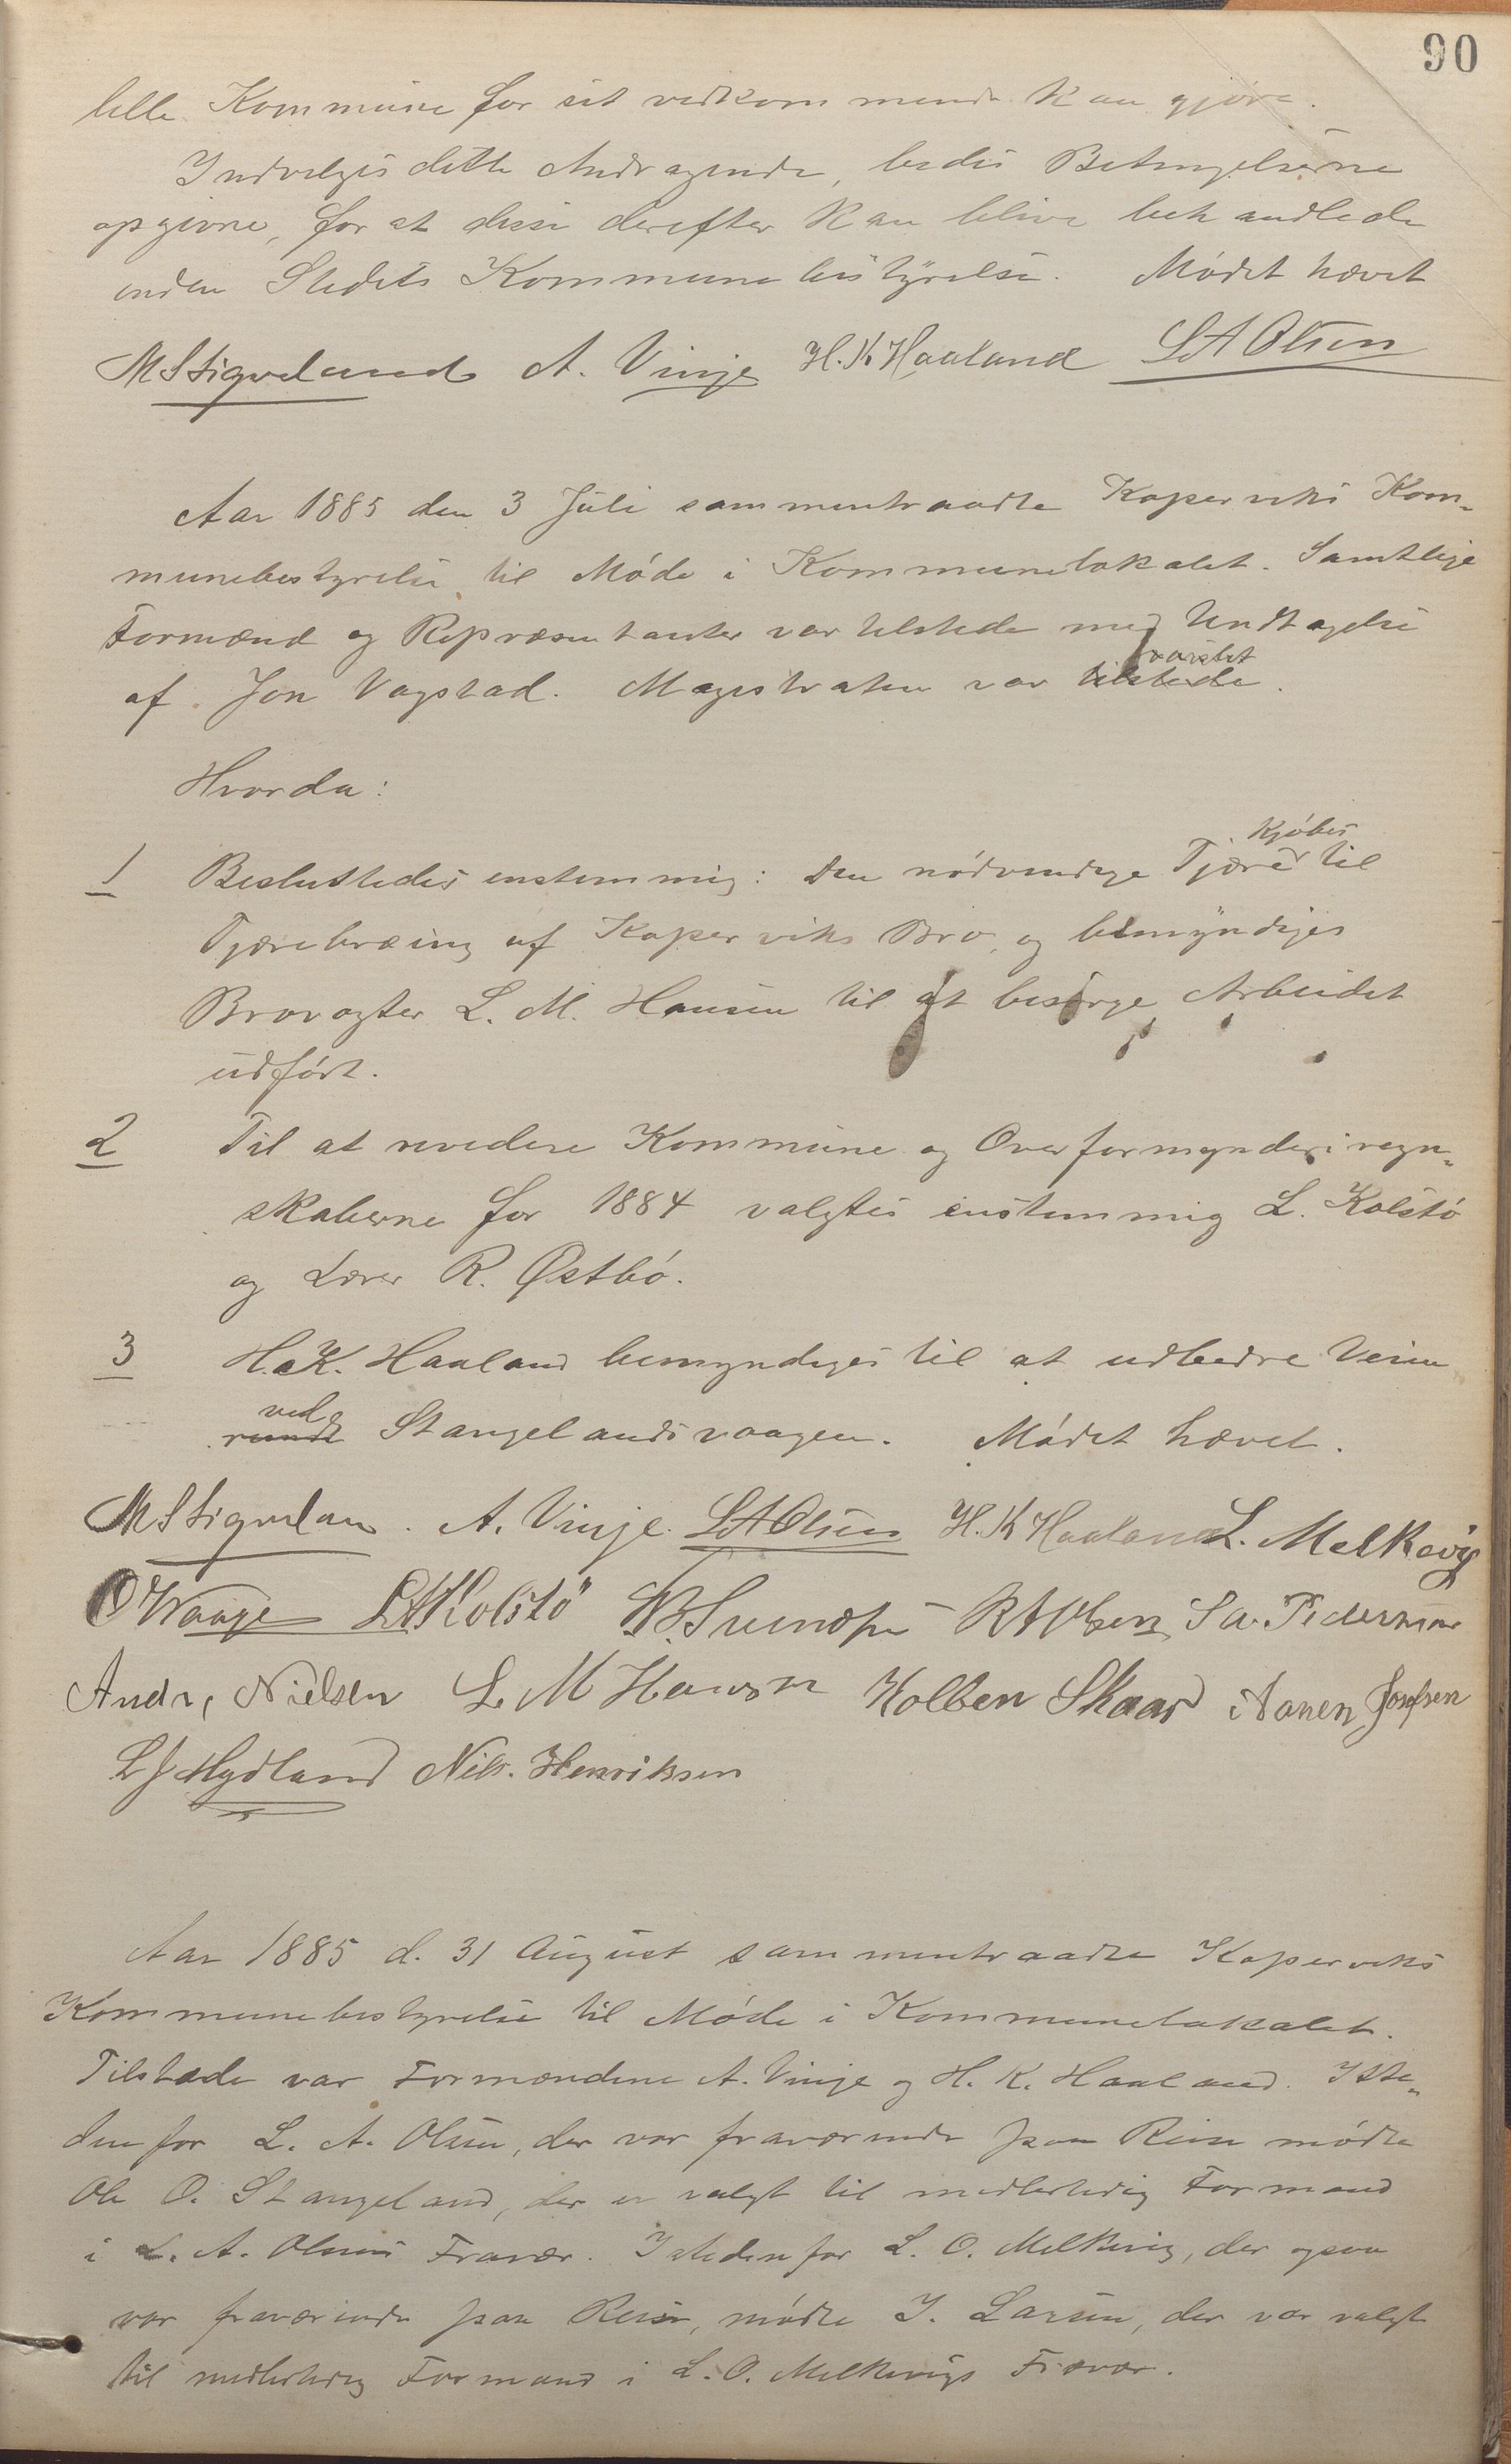 90
lille Kommune for sit vedkommende kan gjøre.
Indvilges dette Andragende, bedes Betingelserne
opgivne, for at disse derefter kan blive behandlede
inden Stedets Kommunebestyrelse. Mødet hævet
M S Sigveland A. Vinje H. K Haaland L A Olsen
Aar 1885 den 3 Juli sammentraadte Koperviks Kom-
munebestyrelse til Møde i Kommunelokalet. Samtlige
Formænd og Repræsentanter var tilstede med Undtagelse
af Jon Vagstad. Magistraten var tilstede varslet.
Hvorda:
1 Besluttedes enstemmig: Den nødvendige Tjære kjøbes til
Tjærebræing af Koperviks Bro, og bemyndiges
Brovogter L. M. Hansen til at besørge Arbeidet
udført.
2 Til at revidere Kommune og Overformynderiregn-
skaberne for 1884 valgtes enstemmig L. Kolstø
og Lærer R. Østbø.
3 H. K. Haaland bemyndiges til at udbedre Veien
rundt ved Stangelandsvaagen. Mødet hævet.
M S Sigveland. A. Vinje. L A Olsen H. K Haaland L. Melkevig
O Waage L A Kolstö R A Olsen S a. Pedersen
Andr, Nielsen L M Hansen Kolben Skaar Aanen Josefsen
L J Hydland Nils. Henriksen
Aar 1885 d. 31 August sammentraadte Koperviks
Kommunebestyrelse til Møde i Kommunelokalet.
Tilstede var Formændene A. Vinje og H. K. Haaland. Iste-
denfor L. A. Olsen, der var fraværende paa Reise mødte
Ole O. Stangeland, der er valgt til midlertidig Formand
i L. A. Olsens Fravær. Istedenfor L. O. Melkevig, der ogsaa
var fraværende paa Reise, mødte J. Larsen, der var valgt
til midlertidig Formand i L. O. Melkevigs Fravær.